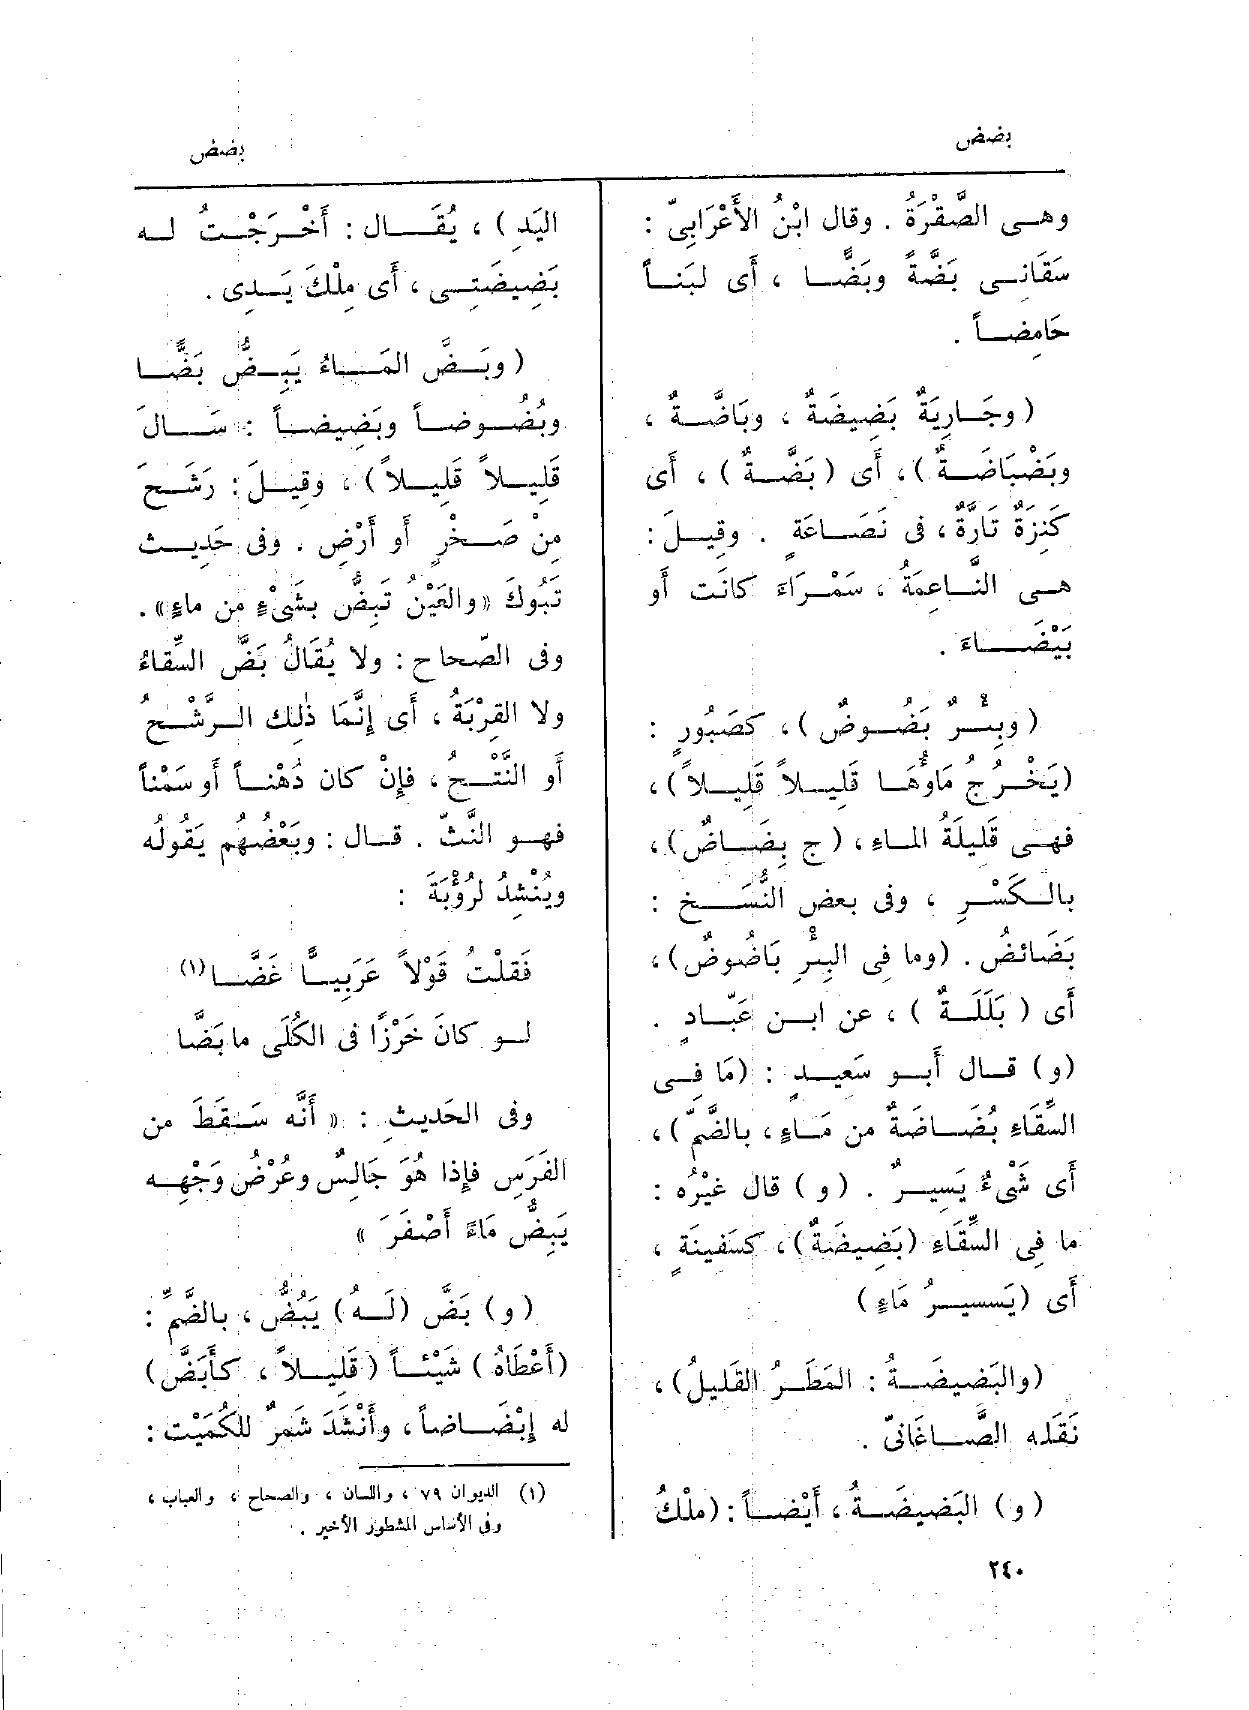 بضض
بضض
وهى الصَّقْرَةُ . وقال ابْنُ الأَعْرَابِىّ :
سَقَانِى بَضَّةً وبَضًّا ، أَى لَبَناً
حَامِضاً .
(وجَارِيَةٌ بَضِيضَةٌ ، وبَاضَّةٌ ،
وبَضْبَاضَةٌ)، أَى (بَضَّةٌ) ، أَى
كَنِزَةٌ تَارَّةٌ، فى نَصَاعَةٍ . وقِيلَ :
هى النَّاعِمَةُ ، سَمْرَاءَ كانَت أَو
بَيْضَاءَ .
(وبِئْرٌ بَضُوضٌ) ، كصَبُورٍ :
(يَخْرُجُ مَاؤُهَا قَلِيلاً قَلِيلاً)،
فهى قَلِيلَةُ الماءِ، (ج بِضَاضٌ)،
بالكَسْرِ ، وفى بعض النُّسَخ :
بَضَائضُ . (وما فى البِئْرِ بَاضُوضٌ)،
أَى ( بَلَلَةٌ ) ، عن ابن عَبَّادٍ .
(و) قال أَبو سَعِيدٍ : (مَا فِى
السِّقَاءِ بُضَاضَةٌ من مَاءٍ ، بالضَّمّ)،
أَى شَىْءٌ يَسِيرٌ . (و) قال غَيْرُه :
ما فِى السِّقَاءِ (بَضِيضَةٌ)، كسَفِينَةٍ ،
أَى (يَسِيرُ مَاءٍ)
(والبَضِيضَةُ : المَطَرُ القَلِيلُ)،
نَقَله الصَّاغَانِىّ .
(و) البَضِيضَةُ، أَيْضاً : (مِلْكُ
اليَدِ) ، يُقَال : أَخْرَجْتُ له
بَضِيضَتِى ، أَى مِلْكَ يَدِى .
(وبَضَّ المَاءُ يَبِضُّ بَضًّا
وبُضُوضاً وبَضِيضاً : سَالَ
قَلِيلاً قَلِيلاً) ، وقِيلَ : رَشَحَ
مِنْ صَخْرٍ أَو أَرْضٍ . وفى حَدِيث
تَبُوكَ «والعَيْنُ تَبِضُّ بشَىْءٍ من ماءٍ» .
وفى الصّحاح : ولا يُقَالُ بَضَّ السِّقَاءُ
ولا القِرْبَةُ ، أَى إِنَّمَا ذٰلِك الرَّشْحُ
أَو النَّتْحُ ، فإِنْ كان دُهْناً أَو سَمْناً
فهو النَّثّ . قال : وبَعْضُهُم يَقُولُه
ويُنْشِدُ لرُؤْبَةَ :
فَقلْتُ قَوْلاً عَرَبِيًّا غَضَّا (١)
لو كانَ خَرْزًا فى الكُلَى ما بَضَّا
وفى الحَدِيثِ : « أَنَّه سَقَطَ من
الفَرَسِ فإِذا هُوَ جَالِسٌ وعُرْضُ وَجْهِه
يَبِضُّ مَاءً أَصْفَرَ »
(و) بَضَّ (لَهُ) يَبُضُّ ، بالضَّمِّ :
(أَعْطَاهُ) شَيْئاً (قَلِيلاً ، كأَبَضَّ)
له إِبْضَاضاً، وأَنْشَدَ شَمِرٌ للكُمَيْت :
(١) الديوان ٧٩ ، واللسان ، والصحاح ، والعباب ،
وفى الأساس المشطور الأخير .
٢٤٠